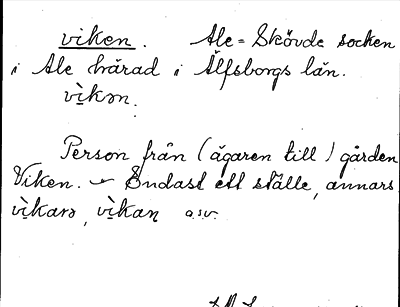 viken. Ale-Skövde socken
i Ale härad i Älfsborgs län.
vìkən.
Person från (ägaren till) gården
Viken. ~ Endast ett ställe, annars
vìkarə, vìkan̥ o.s.v.